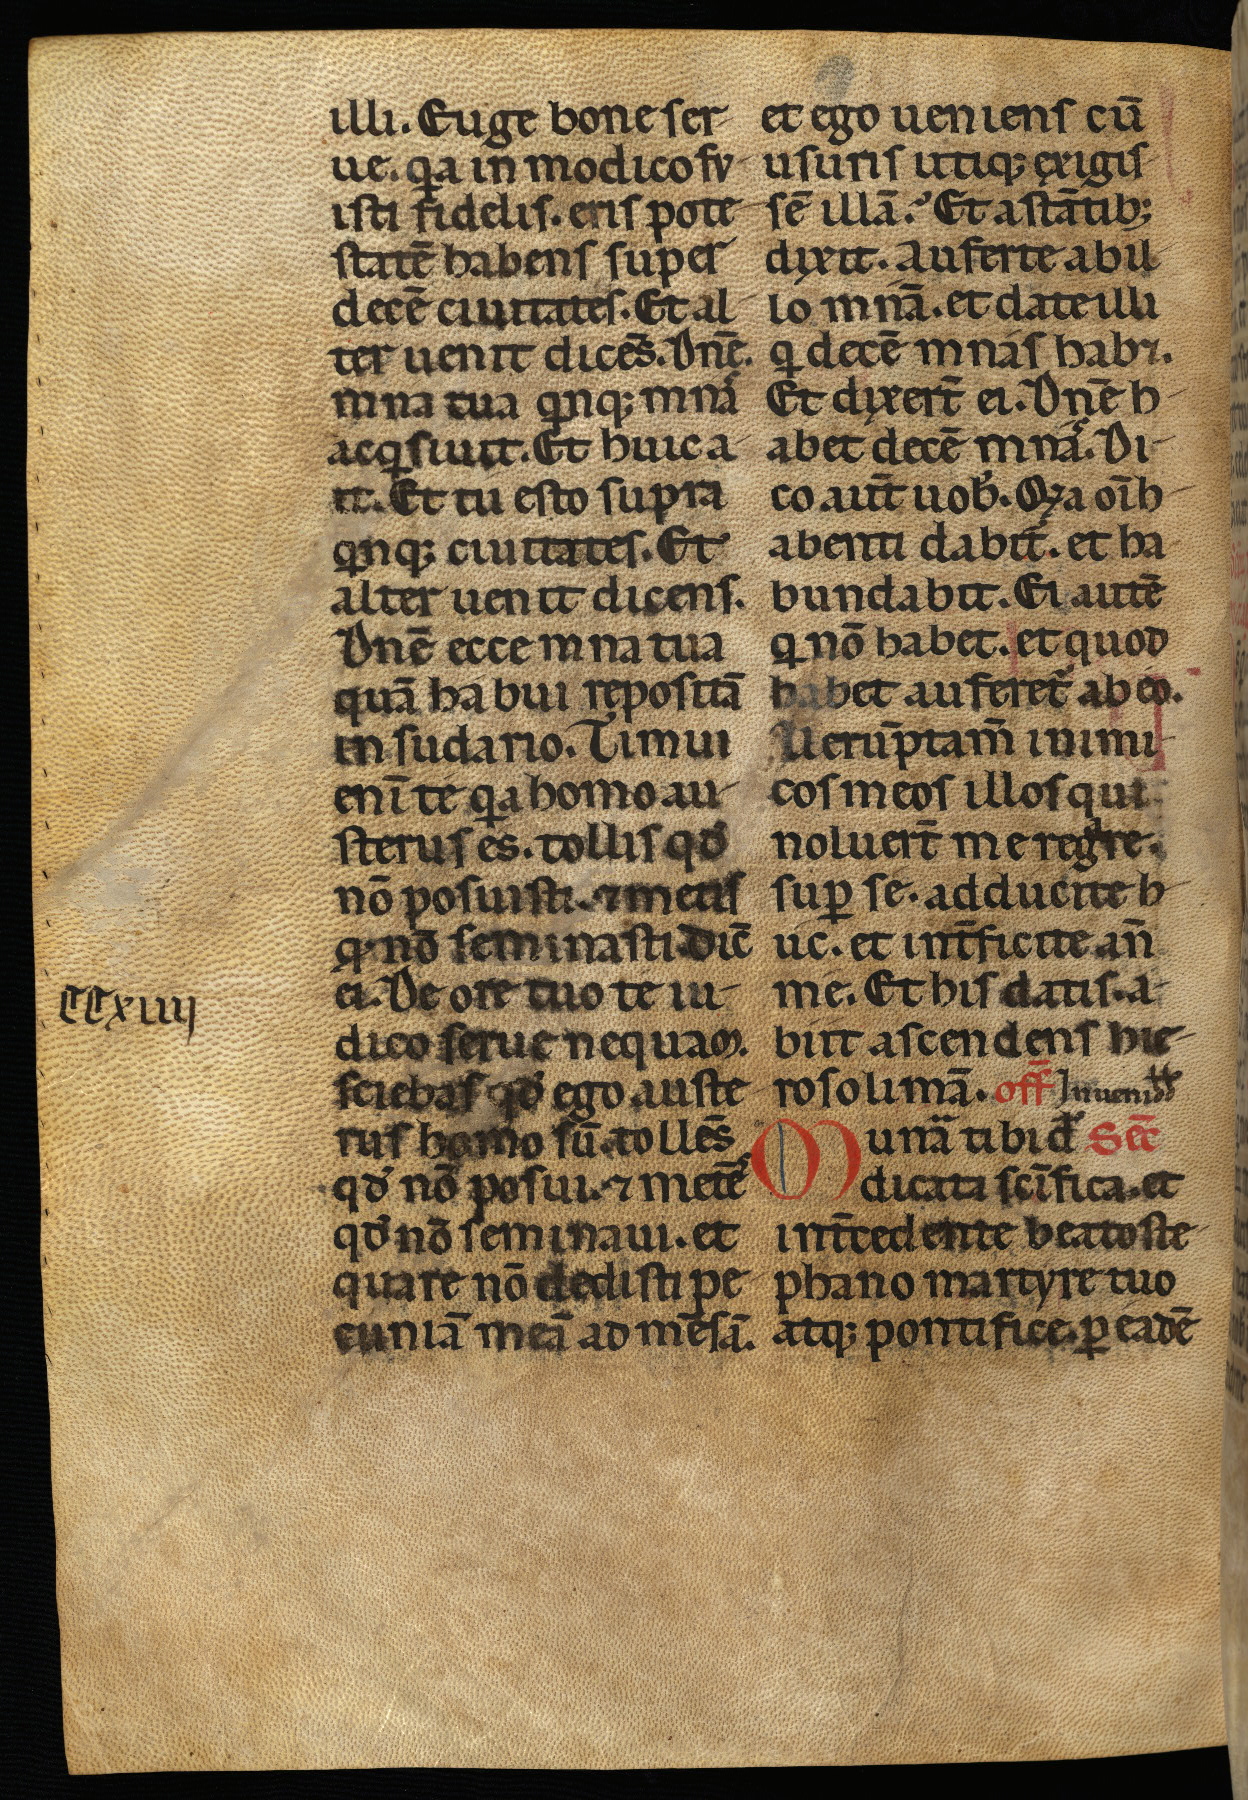 illi. Euge bone ser
ue. qa in modico fu
isti fidelis. eris pote
statē habens super
decē ciuitates. Et al
ter uenit dicēs. Dnē.
mna tua qnq; mnas
acqsiuit. Et huic a
it. Et tu esto supra
qnq; ciuitates. Et
alter uenit dicens.
Dnē ecce mna tua
quā habui repositā
in sudario. Timui
enī te qa homo au
sterus es. tollis qđ
nō posuisti. ⁊ metis
q nō seminasti. Dic̄
ei. De ore tuo te iu
dico serue nequam.
sciebas qđ ego auste
rus homo sū. tollēs
qđ nō posui. ⁊ metēs
qđ nō seminaui. et
quare nō dedisti pe
cuniā meā ad mēsā.
CCxiiii
et ego ueniens cū
usuris utiq; exigis
sē illā. Et astātib;
dixit. Auferte ab il
lo mnā. et date illi
q decē mnas habꝫ.
Et dixert̄ ei. Dnē h
abet decē mnas. Di
co aut̄ uob. Qꝛa oīh
abenti dabit̄. et ha
bundabit. Ei autē
q nō habet. et quod
habet aufereť ab eo.
Uerūptam̄ inimi
cos meos illos qui
noluert̄ me regre.
suꝑ se. adducite h
uc. et int̄ficite an̄
me. Et his datis. a
biit ascendens hie
rosolimā. off̄ Inueni đđ
Munā tibi đ Sec̄
dicata scīfica. et
int̄cedente beato ste
phano martyre tuo
atq; pontifice. ꝑ eadē